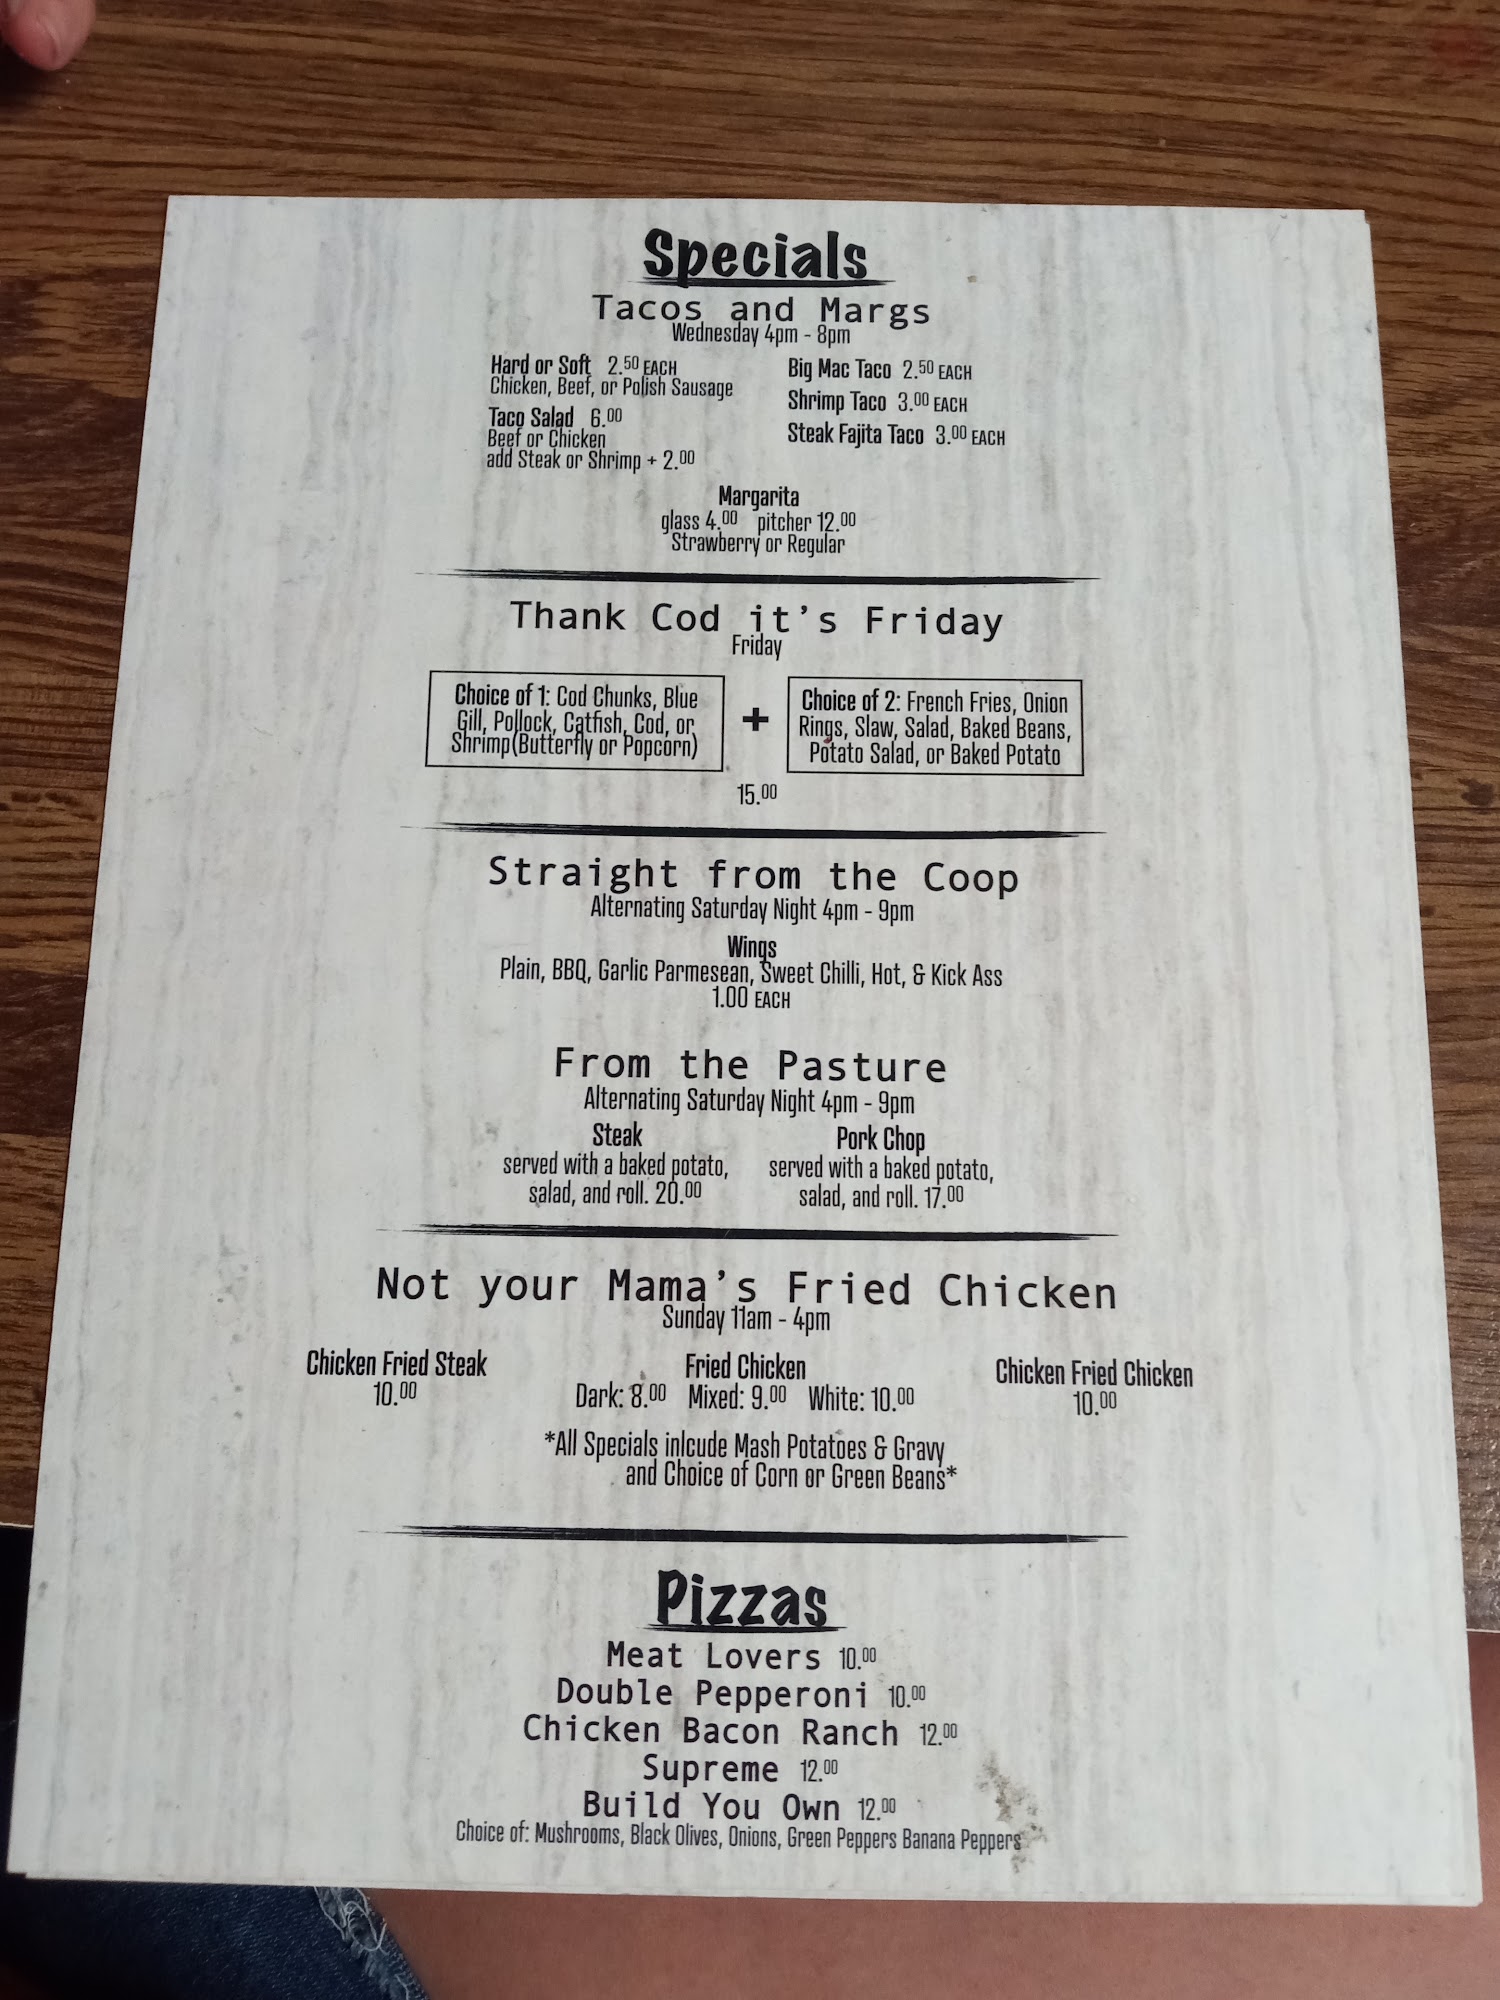 Specials
Tacos and Margs
Wednesday 4pm - 8pm
Hard or Soft 2.50 EACH
Chicken, Beef, or Polish Sausage
Taco Salad 6.00
Beef or Chicken
add Steak or Shrimp + 2.00
Big Mac Taco 2.50 EACH
Shrimp Taco 3.00 EACH
Steak Fajita Taco 3.00 EACH
Margarita
glass 4.00 pitcher 12.00
Strawberry or Regular
Thank Cod it's Friday
Friday
Choice of 1: Cod Chunks, Blue
Gill, Pollock, Catfish, Cod, or
Shrimp(Butterfly or Popcorn)
+
Choice of 2: French Fries, Onion
Rings, Slaw, Salad, Baked Beans,
Potato Salad, or Baked Potato
15.00
Straight from the Coop
Alternating Saturday Night 4pm - 9pm
Wings
Plain, BBQ, Garlic Parmesean, Sweet Chilli, Hot, & Kick Ass
1.00 EACH
From the Pasture
Alternating Saturday Night 4pm - 9pm
Steak
served with a baked potato,
salad, and roll. 20.00
Pork Chop
served with a baked potato,
salad, and roll. 17.00
Not your Mama's Fried Chicken
Sunday 11am - 4pm
Chicken Fried Steak
10.00
Fried Chicken
Dark: 8.00 Mixed: 9.00 White: 10.00
Chicken Fried Chicken
10.00
*All Specials inlcude Mash Potatoes & Gravy
and Choice of Corn or Green Beans*
Pizzas
Meat Lovers 10.00
Double Pepperoni 10.00
Chicken Bacon Ranch 12.00
Supreme 12.00
Build You Own 12.00
Choice of: Mushrooms, Black Olives, Onions, Green Peppers Banana Peppers